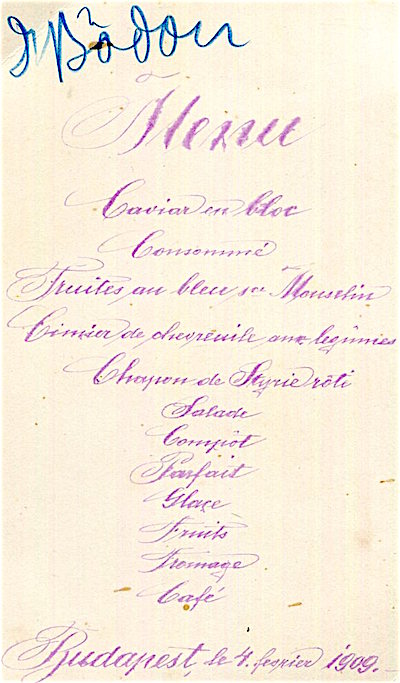 Menu
Caviar en bloc
Consommé
Truites au bleu sce Mouselin
Cimier de chevreuile aux legûmes
Chapon de Styrie rôti
Salade
Compôt
Parfait
Glace
Fruits
Fromage
Café
Budapest, le 4. fevrier 1909.